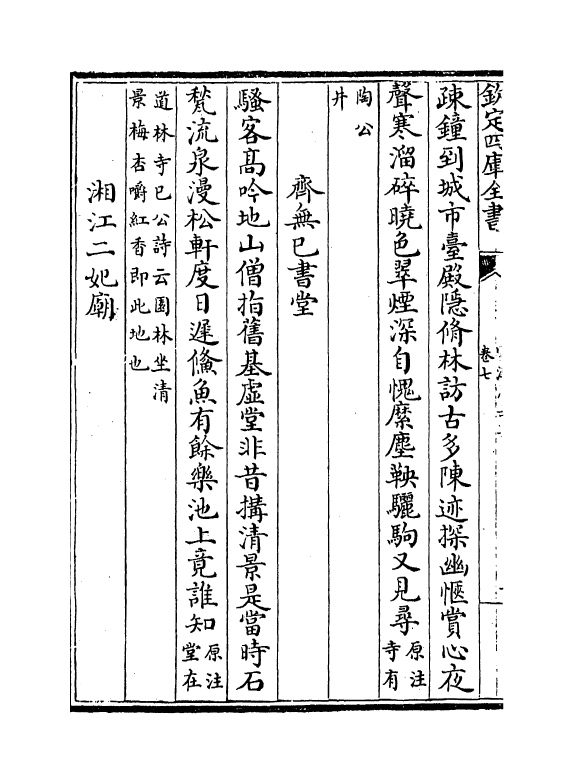 欽定四庫全書
卷七
疎鐘到城市臺殿隱脩林訪古多陳迹探幽愜賞心夜
聲寒溜碎曉色翠煙深自愧縻塵鞅驪駒又見尋原注寺有
陶公井
齊無已書堂
騷客髙吟地山僧指舊基虛堂非昔搆清景是當時石
甃流泉漫松軒度日遲鯈魚有餘樂池上竟誰知原注堂在
道林寺已公詩云園林坐清
景梅杏嚼紅香即此地也
湘江二妃廟